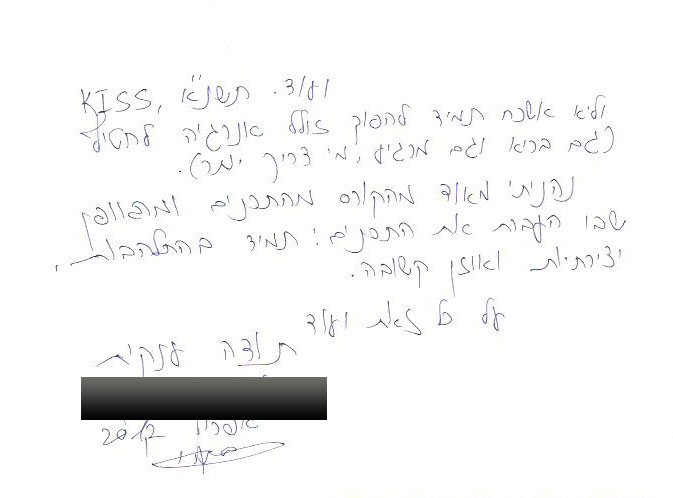 ועוד. תשנ"א KISS,
ולא אשכח תמיד להפוך זולל אנרגיה לחטיף
(גם בריא וגם מרגיע, מי צריך יותר).
נהניתי מאוד מהקורס מהתכנים ומהאופן
שבו העברת את התכנים: תמיד בהתלהבות,
יצירתיות ואוזן קשובה.
על כל זאת ועוד
תודה ענקית